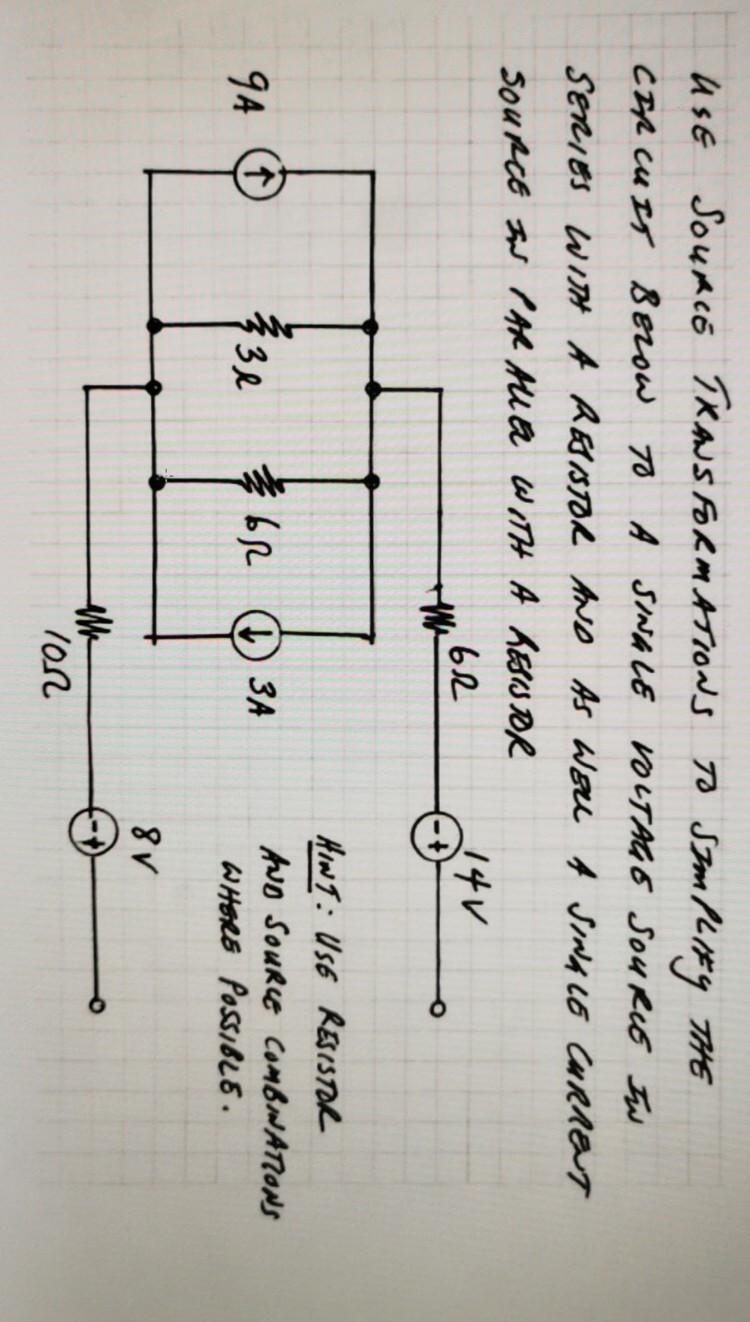 USE SOURCE TRANSFORMATIONS TO SIMPLIFY THE
CIRCUIT BELOW TO A SINGLE VOLTAGE SOURCE IN
SERIES WITH A RESISTOR AND AS WELL A SINGLE CURRENT
SOURCE IN PARALLEL WITH A RESISTOR
6Ω
14V
- +
9A
3Ω
6Ω
3A
HINT: USE RESISTOR
AND SOURCE COMBINATIONS
WHERE POSSIBLE.
8V
- +
10Ω